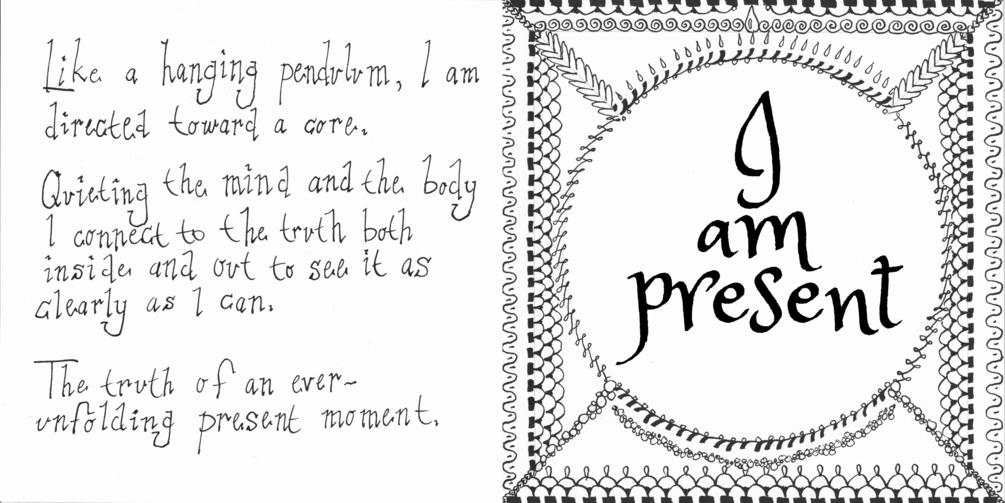 Like a hanging pendulum, I am
directed toward a core.
Quieting the mind and the body
I connect to the truth both
inside and out to see it as
clearly as I can.
The truth of an ever~
unfolding present moment.
I
am
present